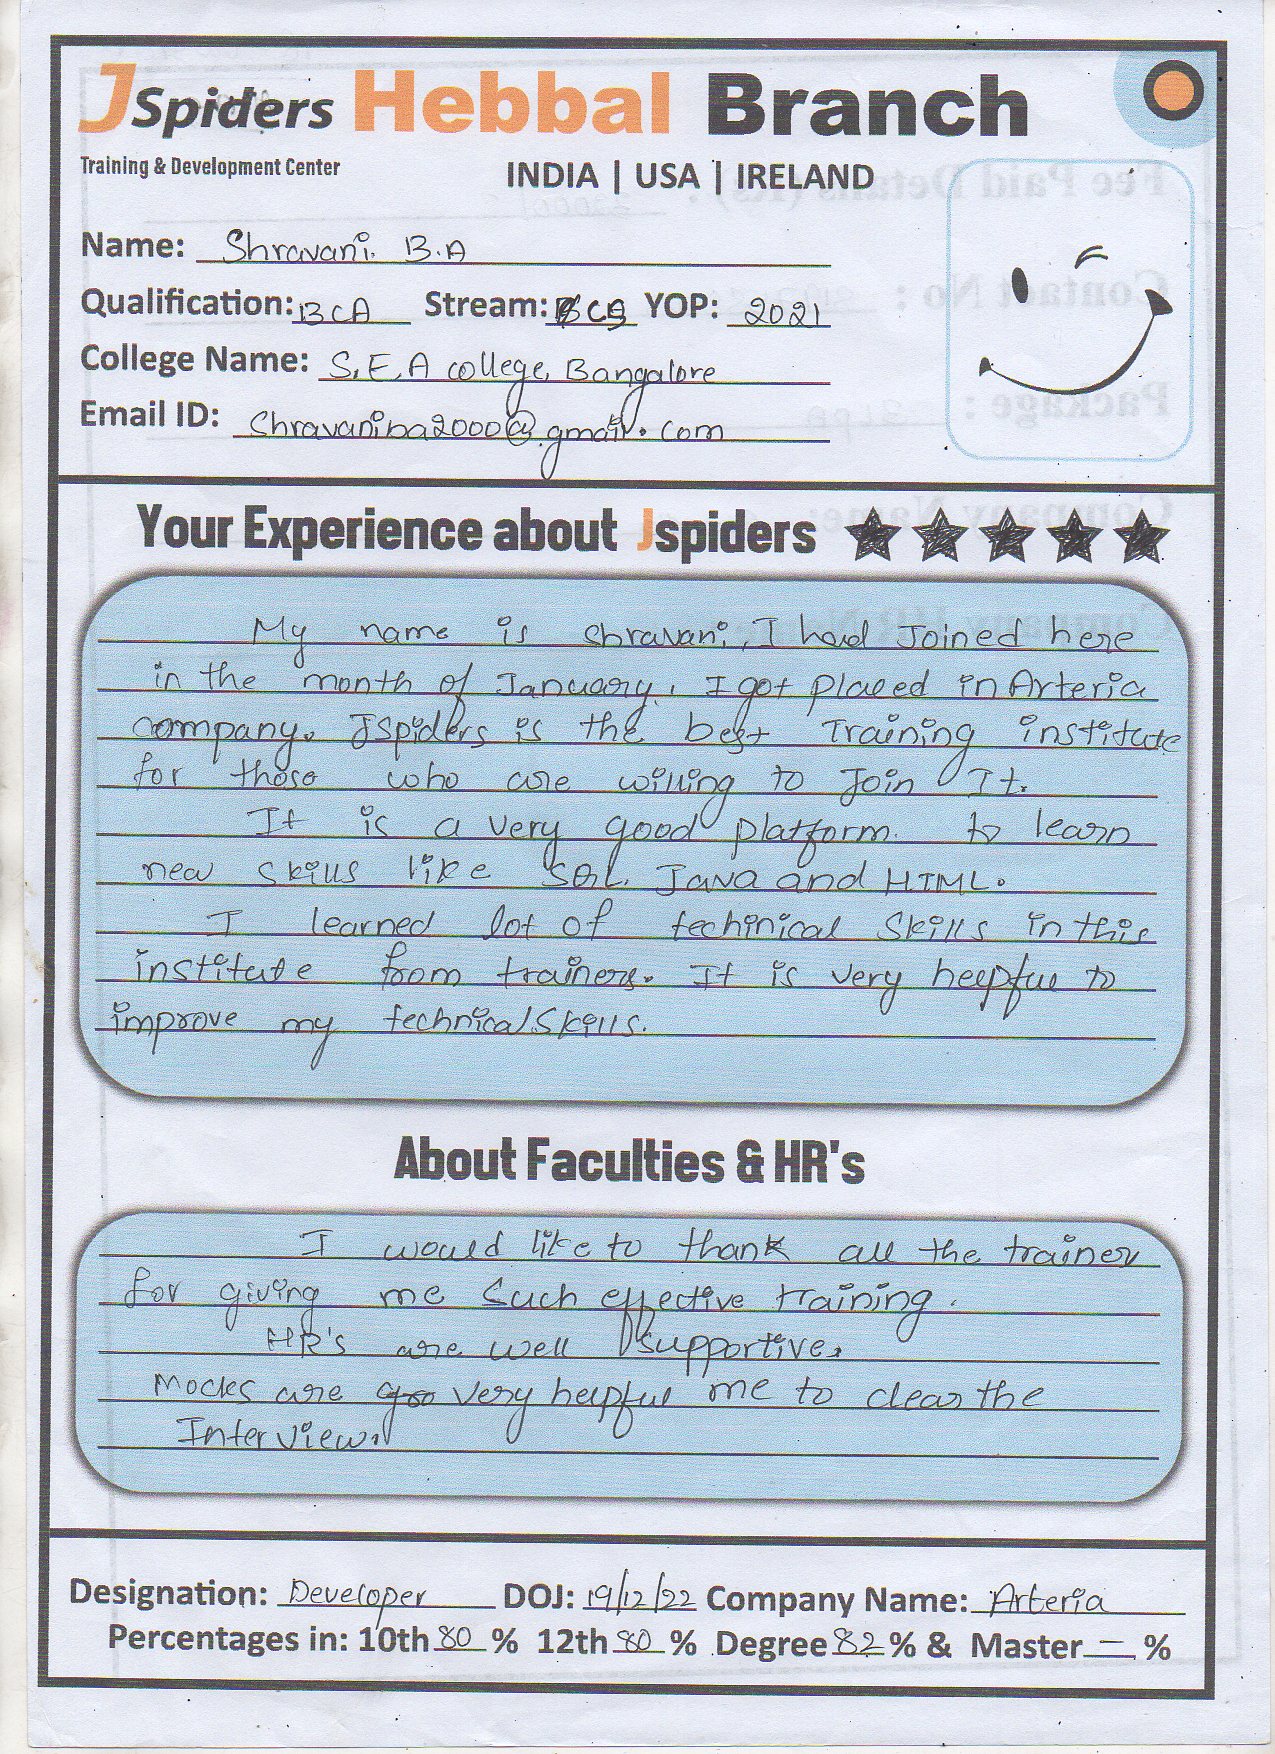 JSpiders Hebbal Branch
Training & Development Center
INDIA | USA | IRELAND
Name: Shravani. B.A
Qualification: BCA Stream: YOP: 2021
College Name: S.E.A college, Bangalore
Email ID: Shravaniba2000@gmail.com
Your Experience about Jspiders
My name is Shravani, I had Joined here
in the month of January. I got placed in Arteria
company. Jspiders is the best Training institute
for those who are willing to Join It.
It is a very good platform. to learn
new skills like SQL. Java and HTML.
I learned lot of techinical Skills in this
institute from trainers. It is very helpful to
improve my technical Skills.
About Faculties & HR's
I would like to thank all the trainer
for giving me Such effective training.
HR's are well supportive.
Mocks are very helpful me to clear the
Interview.
Designation: Developer DOJ: 19/12/22 Company Name: Arteria
Percentages in: 10th 80 % 12th 80 % Degree 82 % & Master — %